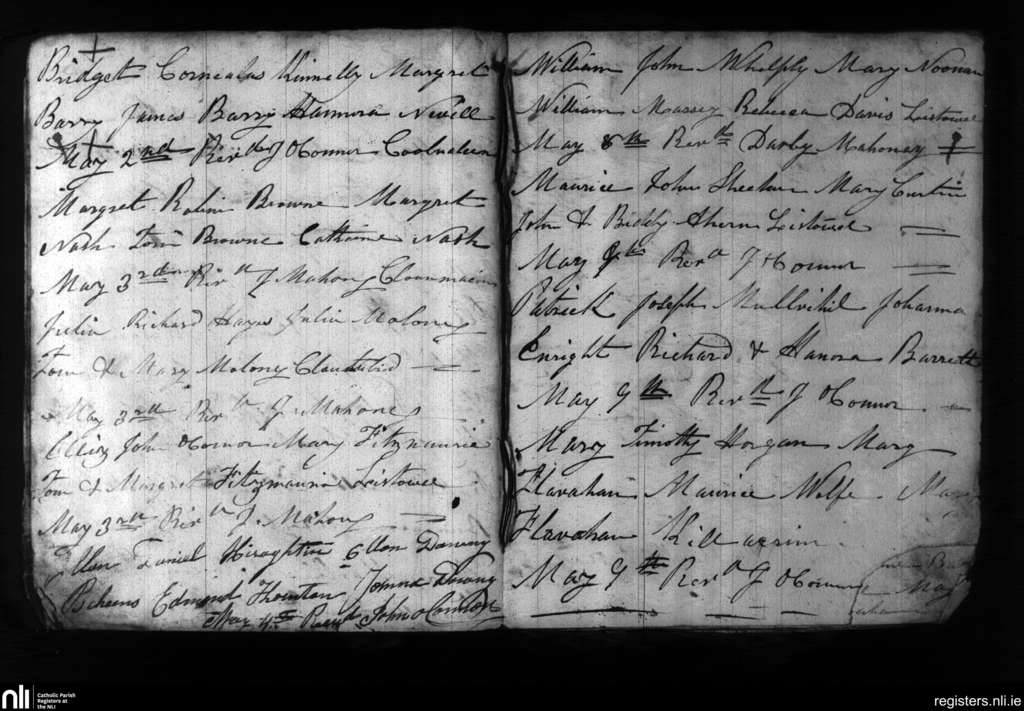 Bridget Cornealus Kinnelly Margret
Barry James Barry Hannora Nevill
May 2nd Revd J OConnor
Margret Robin Browne Margret
Nash Tom Browne Catherine Nash
May 3rd Revd J Mahony
Julia Richard Hayes Julia Molony
Tom & Mary Molony
May 3rd Revd J Mahony
John OConnor Mary Fitzmaurice
Tom & Margret Fitzmaurice Listowel
May 3rd Revd J Mahony
Ellen Daniel Ellen
Edmond Thornton
May 4th Revd John OConnor
William John Whelply Mary Noonan
William Massey Rebecca Davis Listowel
May 8th Revd Darby Mahoney
Maurice John Sheehan Mary Curtin
John & Biddy Ahern Listowel
May Revd J OConnor
Patrick Joseph Mullvihil Johanna
Enright Richard & Hanora Barrett
May 9th Revd J OConnor
Mary Timothy Horgan Mary
Flavahan Maurice Wolfe Mary
Flavahan
May 9th Revd J OConnor
nli Catholic Parish
Registers at
the NLI
registers.nli.ie